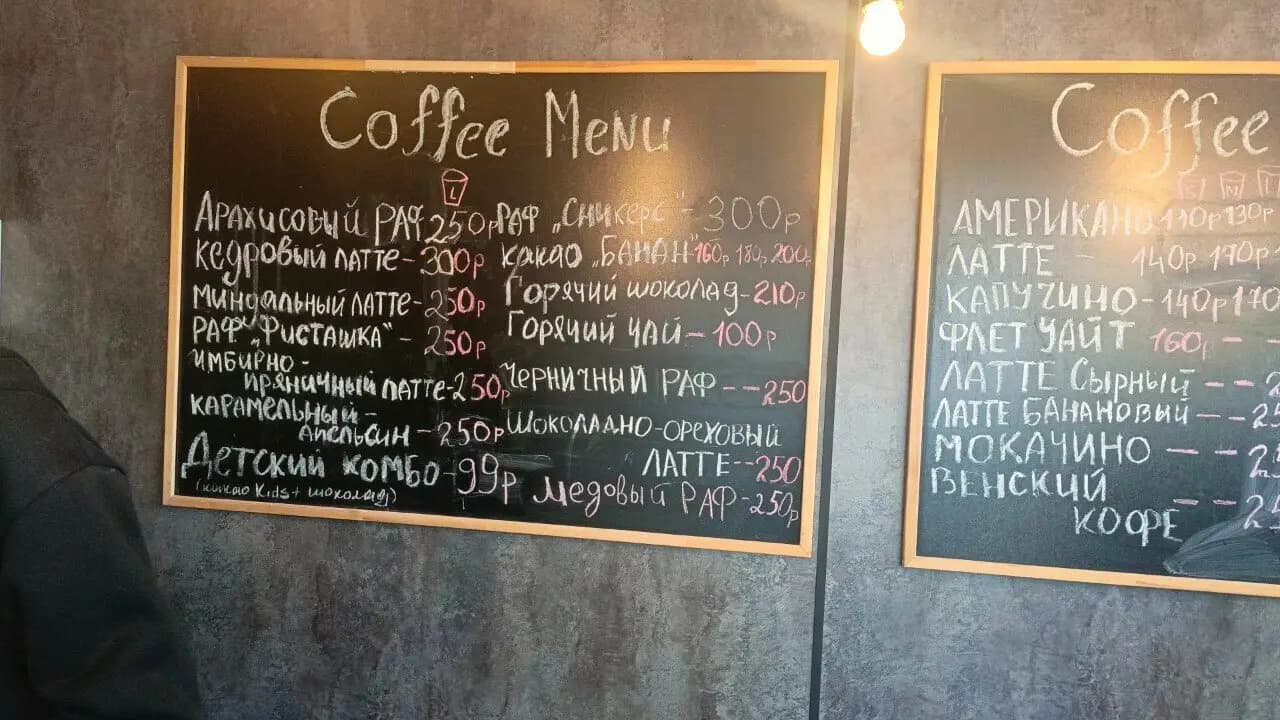 Coffee Menu
L
Арахисовый РАФ 250р
Кедровый латте - 300р
Миндальный латте - 250р
РАФ "Фисташка" - 250р
Имбирно -
пряничный латте - 250р
Карамельный -
апельсин - 250р
Детский комбо - 99р
(какао Kids + шоколад)
РАФ „Сникерс" - 300р
Какао „БАНАН" 160р 180р 200р
Горячий шоколад - 210р
Горячий чай - 100р
Черничный РАФ -- 250
Шоколадно-ореховый
латте -- 250
Медовый РАФ - 250р
Coffee
S M L
Американо 110р 130р
Латте - 140р 170р -
Капучино - 140р 170
Флет Уайт 160р - -
Латте Сырный - -
Латте банановый - - 25
Мокачино - -
Венский
кофе - -